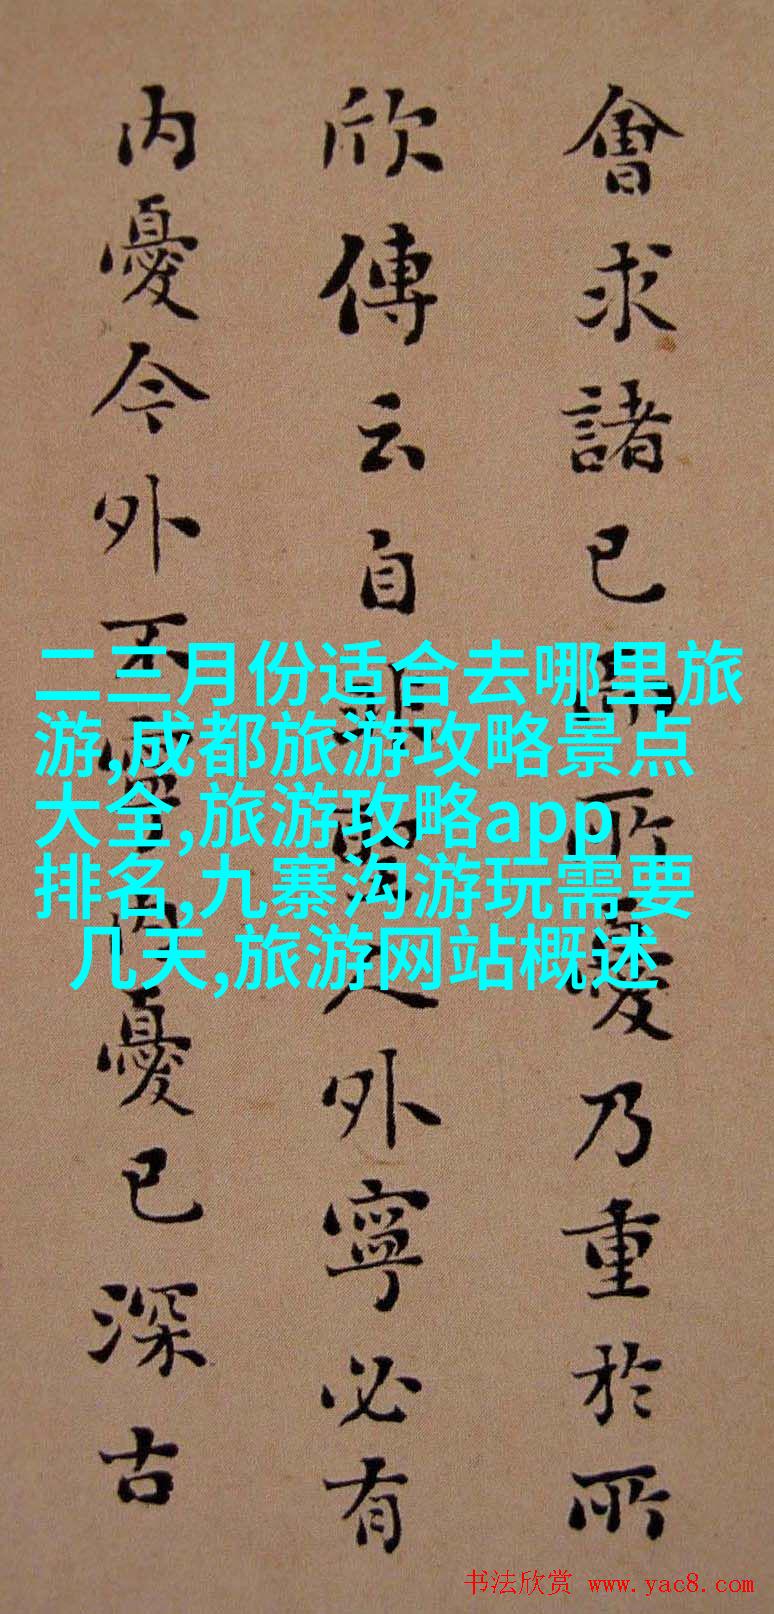 會求諸己所憂乃重於所
欣傳云自非聖人外寧必有
内憂今外不寧内憂已深古
二三月份适合去哪里旅
游,成都旅游攻略景点
大全,旅游攻略app
排名,九寨沟游玩需要
几天,旅游网站概述
书法欣赏 www.yac8.com